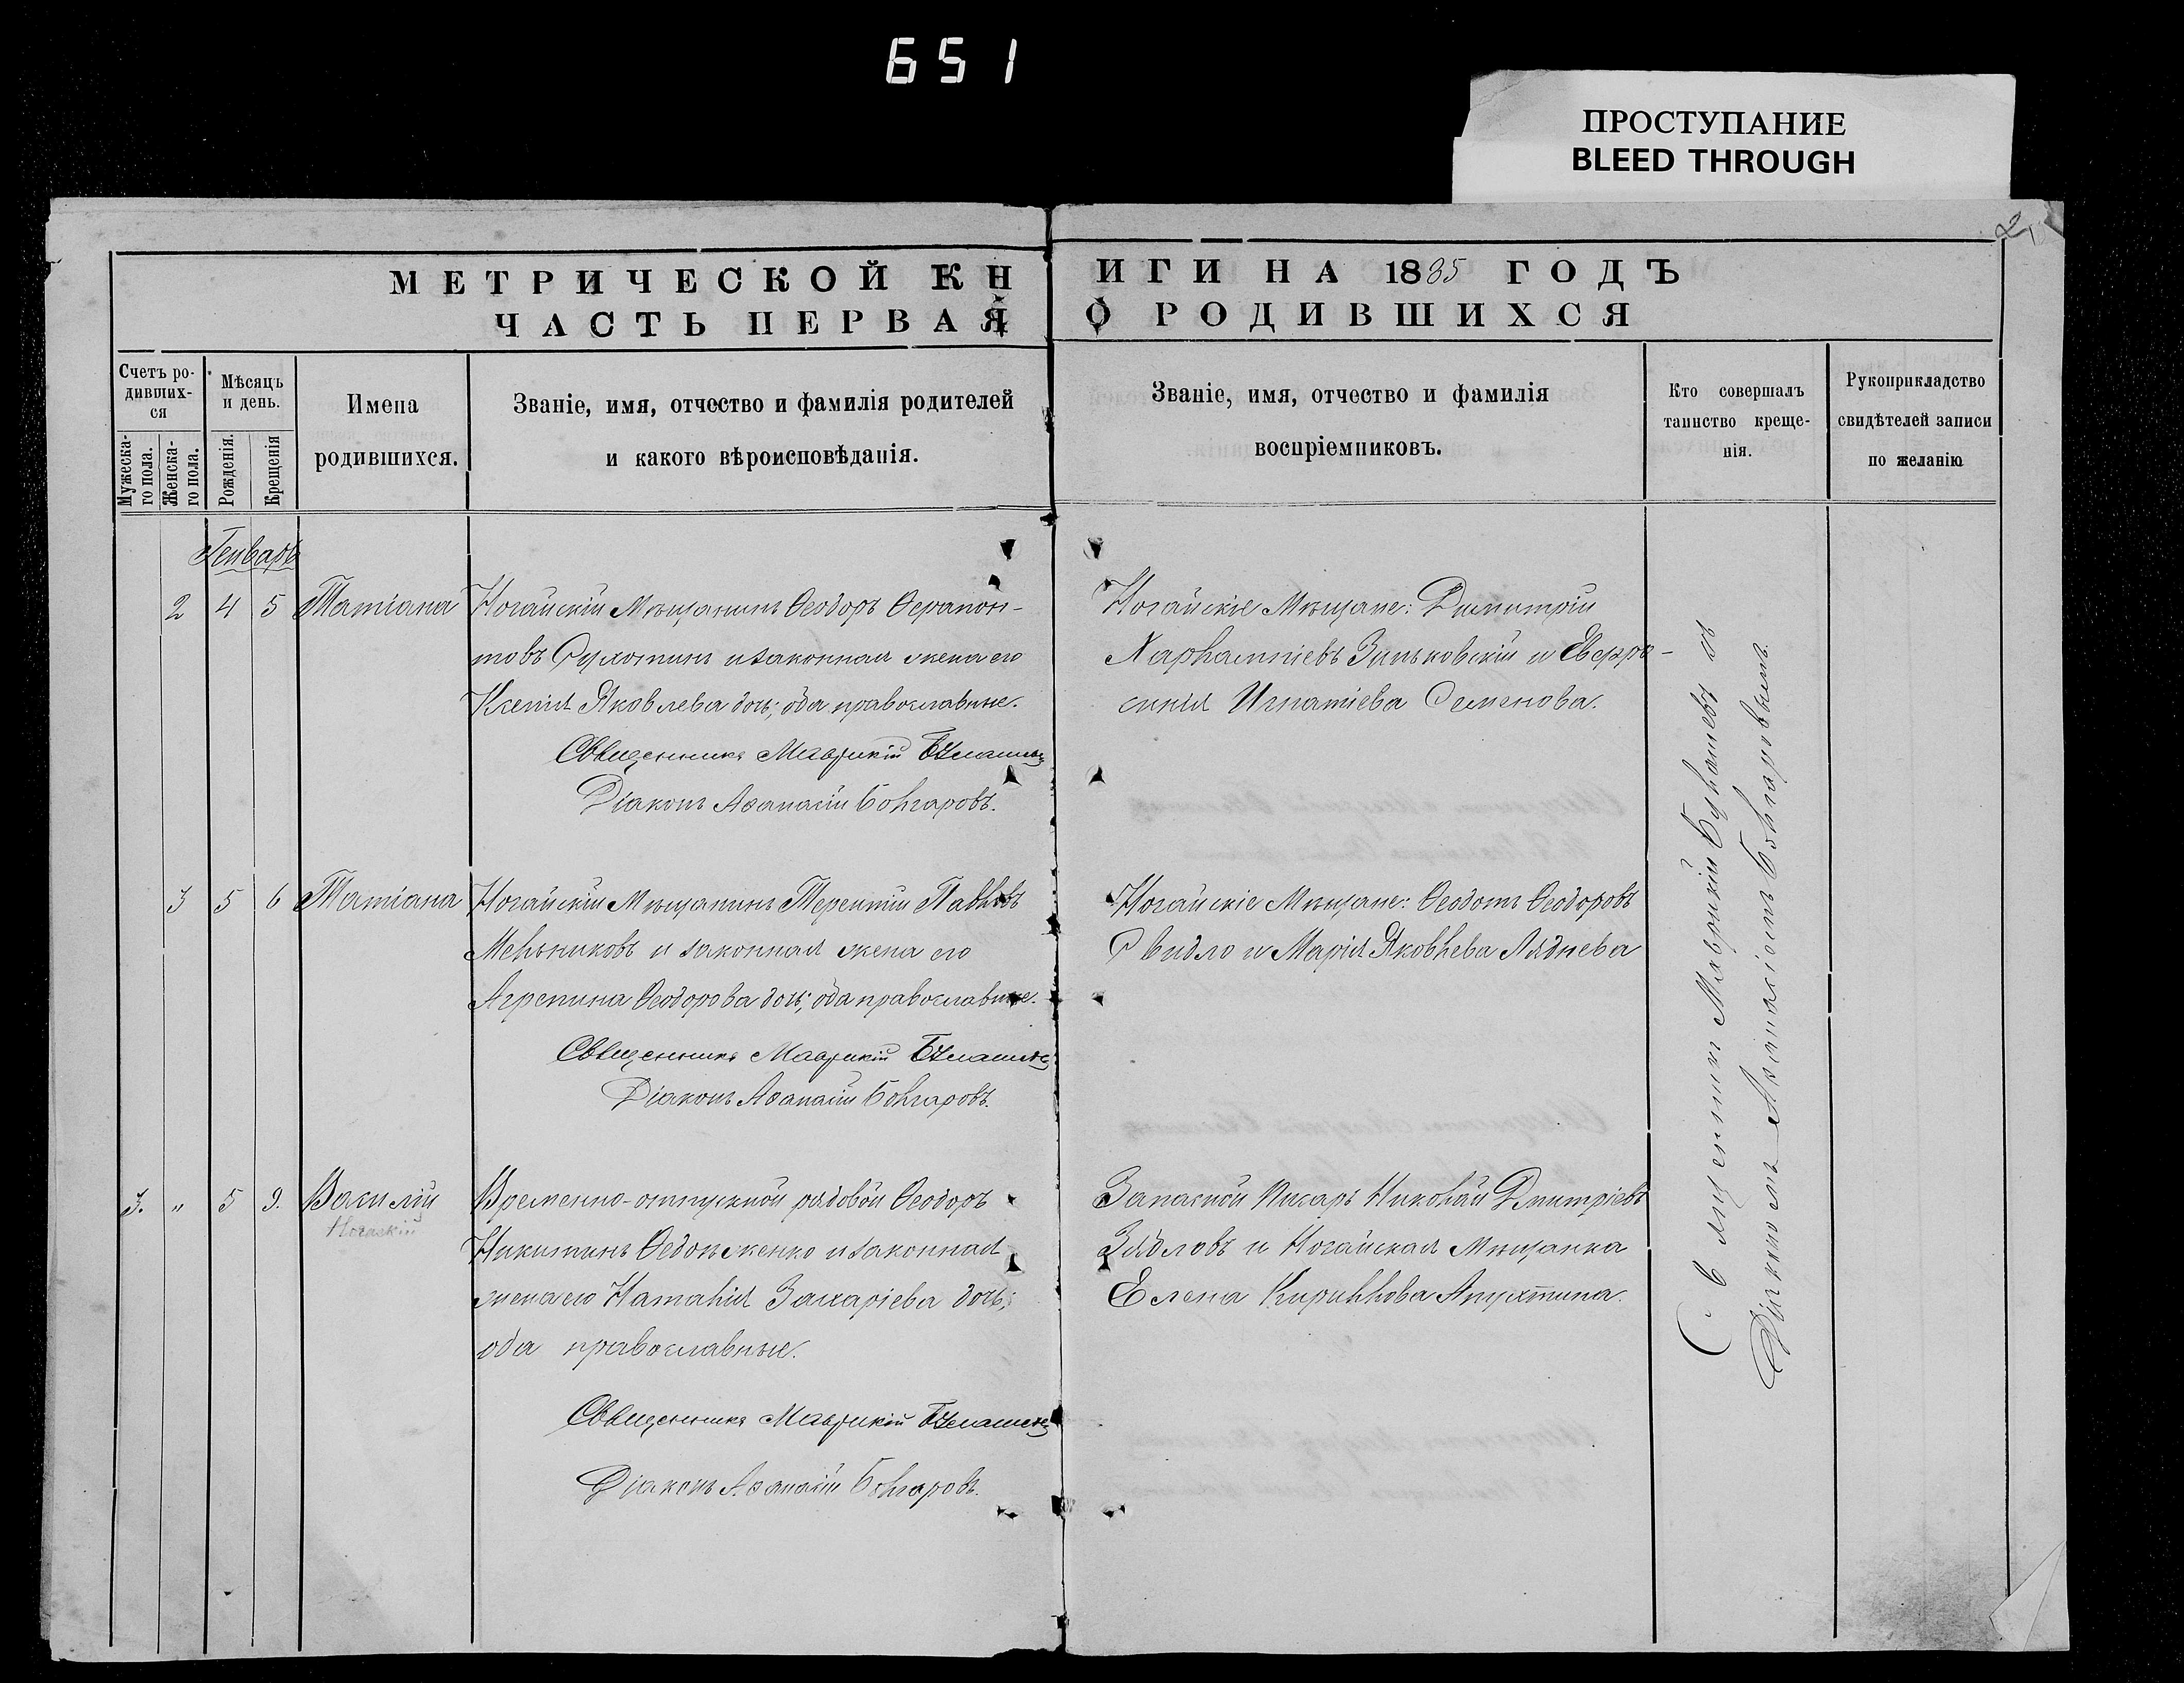 651
ПРОСТУПАНИЕ
BLEED THROUGH
2
МЕТРИЧЕСКОЙ КНИГИ НА 1885 ГОДЪ
ЧАСТЬ ПЕРВАЯ О РОДИВШИХСЯ
Счетъ ро-
дивших-
ся
Мужеска-
го пола.
Женска-
го пола.
Мѣсяцъ
и день.
Рожденія.
Крещенія
Имена
родившихся.
Званіе, имя, отчество и фамилія родителей
и какого вѣроисповѣданія.
Званіе, имя, отчество и фамилія
воспріемниковъ.
Кто совершалъ
таинство креще-
нія.
Рукоприкладство
свидѣтелей записи
по желанію
Генварь
2 4 5 Татіана
Ногайскій Мѣщанинъ Ѳеодоръ Ѳерапон-
товъ и законная жена его
Ксенія Яковлева дочь; оба православные.
Священникъ Маврикій
Діаконъ Аѳанасій Болгаровъ.
Ногайскіе Мѣщане: Димитрій
Харлампіевъ Зиньковскій и Евфро-
синія Игнатіева Семенова.
3 5 6 Татіана
Ногайскій Мѣщанинъ Терентій Павловъ
Мельниковъ и законная жена его
Агрепина Ѳеодорова дочь; оба православные.
Священникъ Маврикій
Діаконъ Аѳанасій Болгаровъ.
Ногайскіе Мѣщане: Ѳеодотъ Ѳеодоровъ
Свидло и Марія Яковлева Ляднева
3. " 5 9. Василій
Ногайскій
Временно-отпускной рядовой Ѳеодоръ
Никитинъ и законная
жена его Наталія Захаріева дочь;
оба православные.
Священникъ Маврикій
Діаконъ Аѳанасій Болгаровъ.
Запасной Писарь Николай Дмитріевъ
Зядловъ и Ногайская Мѣщанка
Елена Кириллова Апухтина.
Священникъ Маврикій съ
Діакономъ Аѳанасіемъ Болгаровымъ.